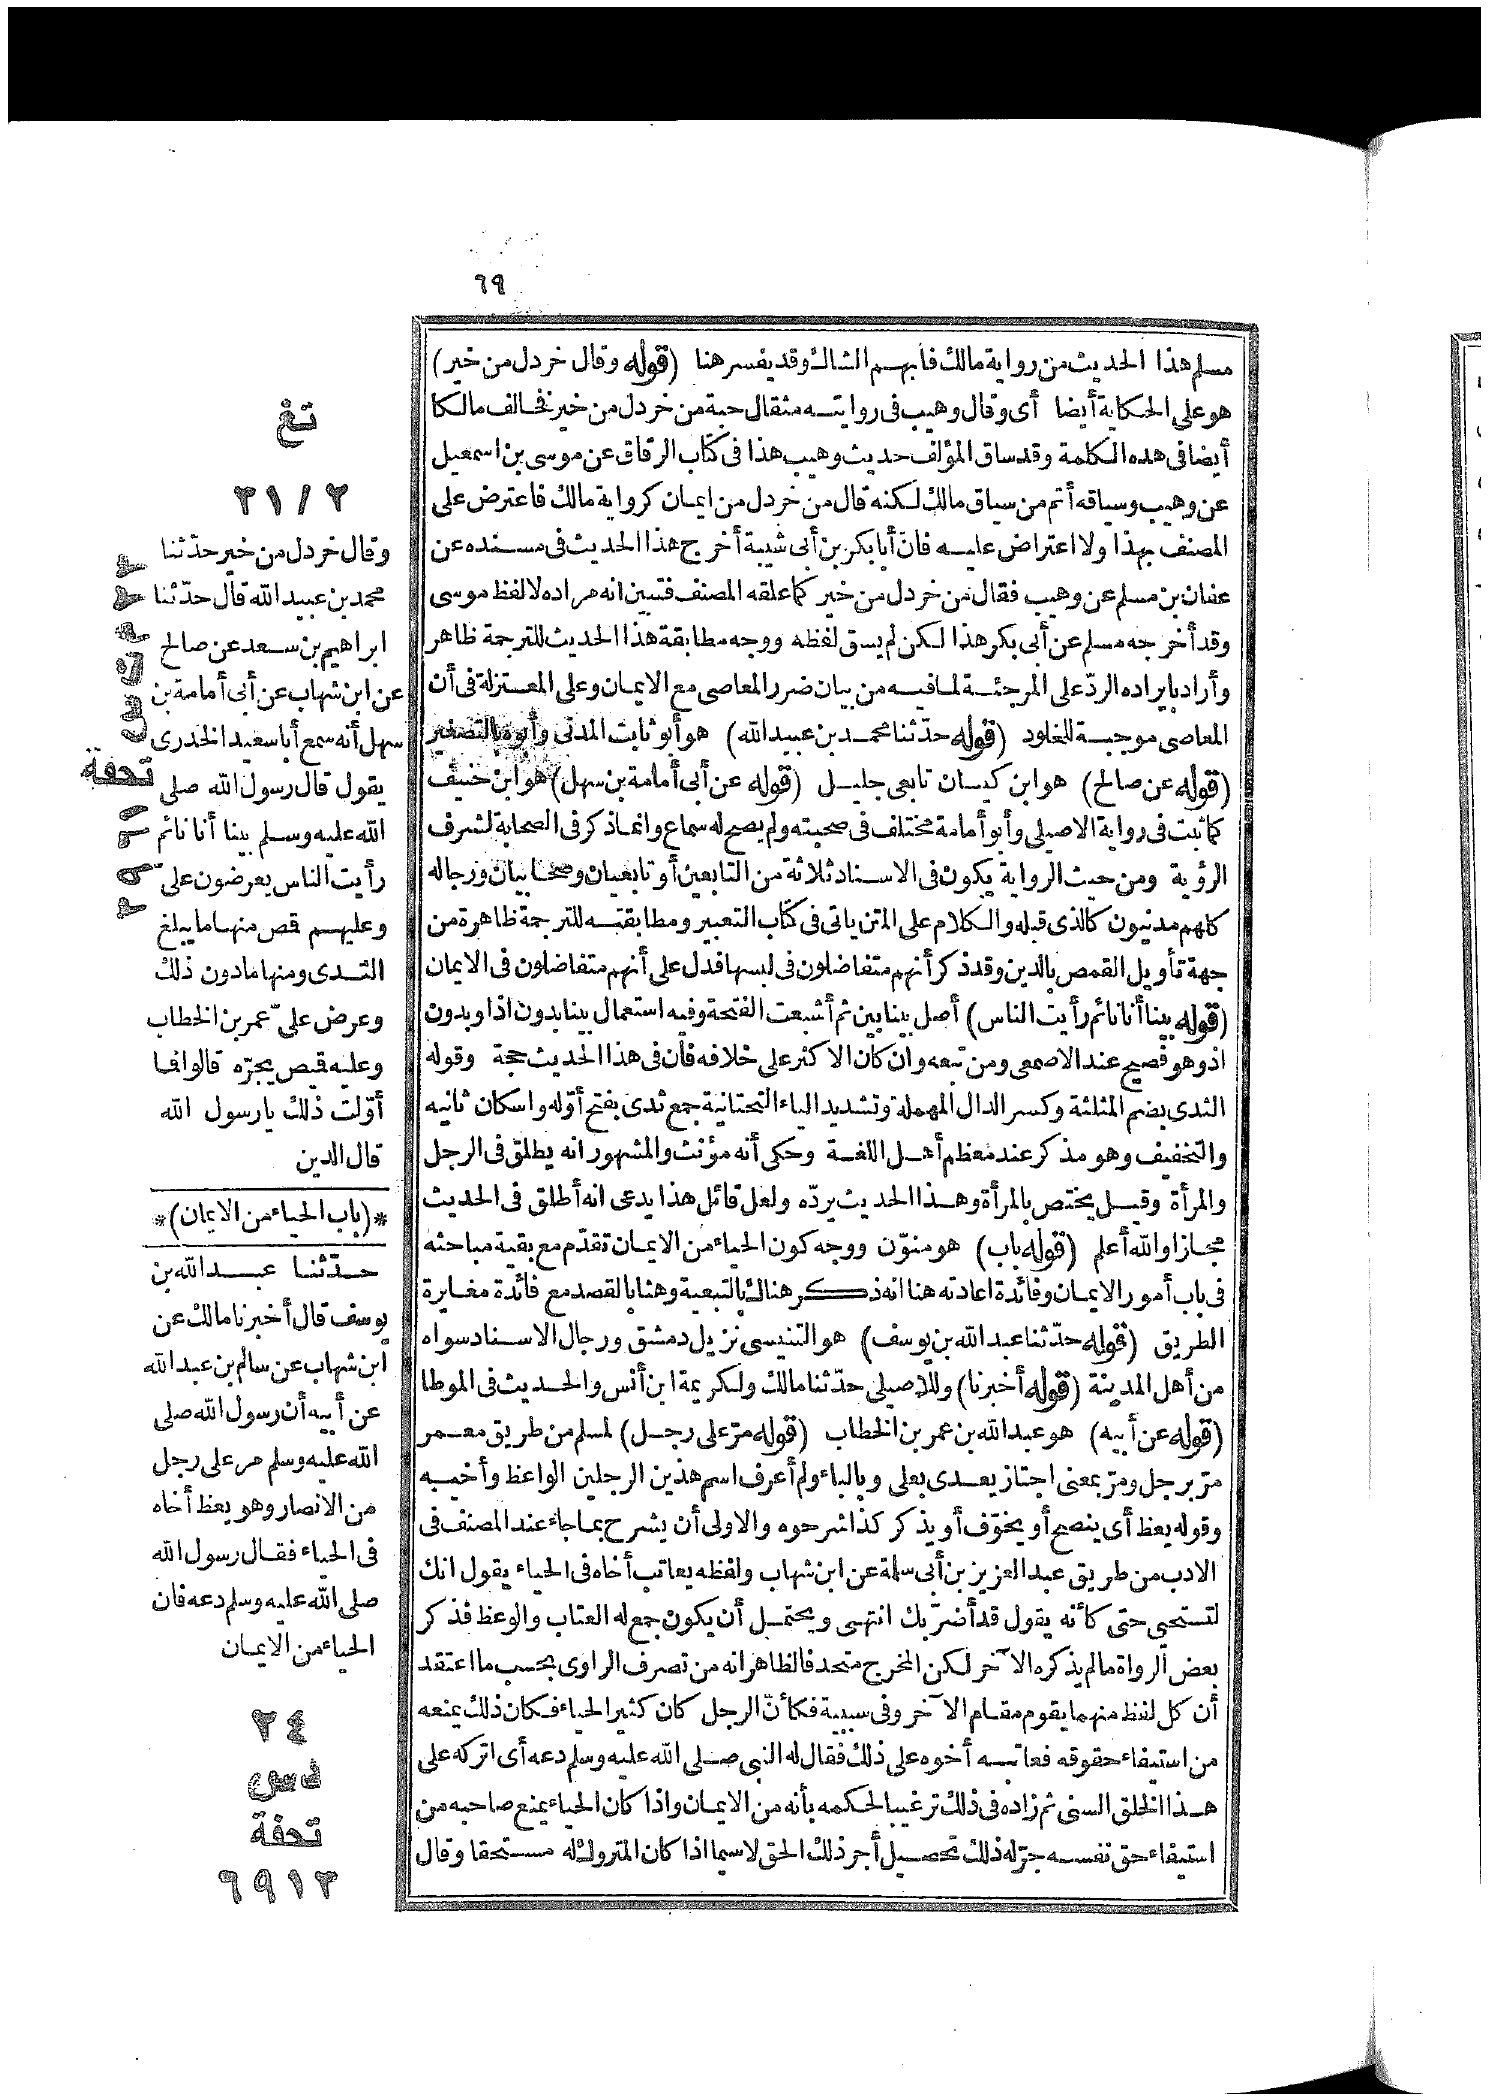 ٦٩
مسلم هذا الحديث من رواية مالك فأبهم الشاك وقد يفسر هنا (قوله وقال خردل من خير)
هو على الحكاية أيضا أى وقال وهيب فى روايته مثقال حبة من خردل من خير فخالف مالكا
أيضا فى هذه الكلمة وقد ساق المؤلف حديث وهيب هذا فى كتاب الرقاق عن موسى بن اسمعيل
عن وهيب وسياقه أتم من سياق مالك لكنه قال من خردل من ايمان كرواية مالك فاعترض على
المصنف بهذا ولا اعتراض عليه فان أبا بكر بن أبى شيبة أخرج هذا الحديث فى مسنده عن
عفان بن مسلم عن وهيب فقال من خردل من خير كما علقه المصنف فتبين انه مراده لا لفظ موسى
وقد أخرجه مسلم عن أبى بكر هذا لكن لم يسق لفظه ووجه مطابقة هذا الحديث للترجمة ظاهر
وأراد بايراده الردّ على المرجئة لما فيه من بيان ضرر المعاصى مع الايمان وعلى المعتزلة فى أن
المعاصى موجبة للخلود (قوله حدّثنا محمد بن عبيد الله) هو أبو ثابت المدنى وأبوه بالتصغير
(قوله عن صالح) هو ابن كيسان تابعى جليل (قوله عن أبى أمامة بن سهل) هو ابن حنيف
كما ثبت فى رواية الاصيلى وأبو أمامة مختلف فى صحبته ولم يصح له سماع وانما ذكر فى الصحابة لشرف
الرؤية ومن حيث الرواية يكون فى الاسناد ثلاثة من التابعين أو تابعيان وصحابيان ورجاله
كلهم مدنيون كالذى قبله والكلام على المتن ياتى فى كتاب التعبير ومطابقته للترجمة ظاهرة من
جهة تأويل القمص بالدين وقد ذكر أنهم متفاضلون فى لبسها فدل على أنهم متفاضلون فى الايمان
(قوله بينا أنا نائم رأيت الناس) أصل بينا بين ثم أشبعت الفتحة وفيه استعمال بينا بدون اذا وبدون
اذ وهو فصيح عند الاصمعى ومن تبعه وان كان الاكثر على خلافه فان فى هذا الحديث حجة وقوله
الثدى بضم المثلثة وكسر الدال المهملة وتشديد الياء التحتانية جمع ثدى بفتح أوّله واسكان ثانيه
والتخفيف وهو مذكر عند معظم أهل اللغة وحكى أنه مؤنث والمشهور انه يطلق فى الرجل
والمرأة وقيل يختص بالمرأة وهذا الحديث يردّه ولعل قائل هذا يدعى انه أطلق فى الحديث
مجازا والله أعلم (قوله باب) هو منوّن ووجه كون الحياء من الايمان تقدّم مع بقية مباحثه
فى باب أمور الايمان وفائدة اعادته هنا انه ذكر هناك بالتبعية وهنا بالقصد مع فائدة مغايرة
الطريق (قوله حدّثنا عبد الله بن يوسف) هو التنيسى نزيل دمشق ورجال الاسناد سواه
من أهل المدينة (قوله أخبرنا) وللاصيلى حدّثنا مالك ولكريمة ابن أنس والحديث فى الموطا
(قوله عن أبيه) هو عبد الله بن عمر بن الخطاب (قوله مرّ على رجل) لمسلم من طريق معمر
مرّ برجل ومرّ بمعنى اجتاز يعدى بعلى وبالباء ولم أعرف اسم هذين الرجلين الواعظ وأخيه
وقوله يعظ أى ينصح أو يخوّف أو يذكر كذا شرحوه والاولى أن يشرح بما جاء عند المصنف فى
الادب من طريق عبد العزيز بن أبى سلمة عن ابن شهاب ولفظه يعاتب أخاه فى الحياء يقول انك
لتستحيى حتى كأنه يقول قد أضرّ بك انتهى ويحتمل أن يكون جمع له العتاب والوعظ فذكر
بعض الرواة ما لم يذكره الآخر لكن المخرج متحد فالظاهر انه من تصرف الراوى بحسب ما اعتقد
أن كل لفظ منهما يقوم مقام الآخر وفى سببية فكأنّ الرجل كان كثير الحياء فكان ذلك يمنعه
من استيفاء حقوقه فعاتبه أخوه على ذلك فقال له النبى صلى الله عليه وسلم دعه أى اتركه على
هذا الخلق السنى ثم زاده فى ذلك ترغيبا لحكمه بأنه من الايمان واذا كان الحياء يمنع صاحبه من
استيفاء حق نفسه جرّ له ذلك تحصيل أجر ذلك الحق لا سيما اذا كان المتروك له مستحقا وقال
تغ
٢١/٢
وقال خردل من خير حدّثنا
محمد بن عبيد الله قال حدّثنا
ابراهيم بن سعد عن صالح
عن ابن شهاب عن أبى أمامة بن
سهل أنه سمع أبا سعيد الخدرى
يقول قال رسول الله صلى
الله عليه وسلم بينا أنا نائم
رأيت الناس يعرضون علىّ
وعليهم قمص منها ما يبلغ
الثدى ومنها ما دون ذلك
وعرض علىّ عمر بن الخطاب
وعليه قميص يجرّه قالوا فما
أوّلت ذلك يا رسول الله
قال الدين
*(باب الحياء من الايمان)*
حدّثنا عبد الله بن
يوسف قال أخبرنا مالك عن
ابن شهاب عن سالم بن عبد الله
عن أبيه أن رسول الله صلى
الله عليه وسلم مر على رجل
من الانصار وهو يعظ أخاه
فى الحياء فقال رسول الله
صلى الله عليه وسلم دعه فان
الحياء من الايمان
٢٤
تحفة
٦٩١٣
تحفة